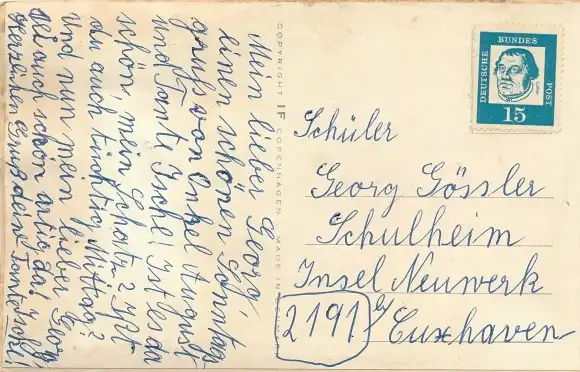 Mein lieber Georg,
einen schönen Sonntags-
gruss von Onkel August
und Tante Ische! Ist es da
schön, mein Schatz? Ißt
du auch tüchtig Mittag?
Und nun mein lieber Georg,
sei auch schön artig da!
herzliche Grüße deine Tante
COPYRIGHT IF COPENHAGEN MADE IN
DEUTSCHE BUNDES POST
15
Schüler
Georg Gössler
Schulheim
Insel Neuwerk
2191 b/ Cuxhaven